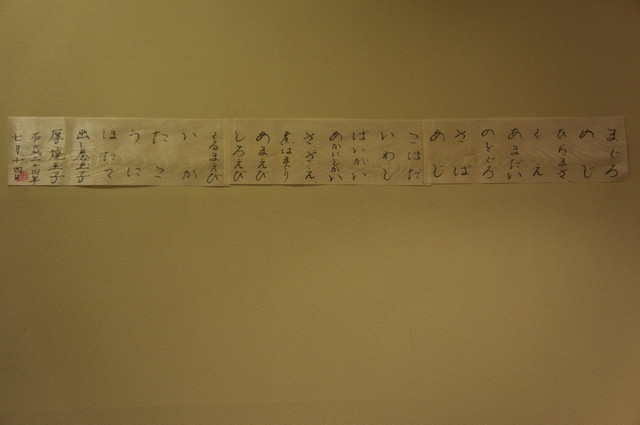 まぐろ
めじ
ひらまさ
くえ
あまだい
のどぐろ
さば
あじ
こはだ
いわし
ばいがい
さざえ
煮はまぐり
あまえび
しろえび
くるまえび
いか
たこ
うに
ほたて
出し巻玉子
厚焼玉子
平成二十四年
七月十四日